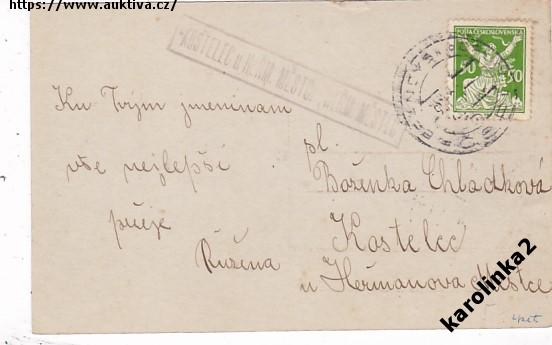 https://www.auktiva.cz/
KOSTELEC u HEŘM. MĚSTCE
POŠTA ČESKOSLOVENSKÁ
50 50
Ku Tvým jmeninám
vše nejlepší
přeje
Růžena
pl.
Boženka Chládková
Kostelec
u Heřmanova Městce
zpět
karolinka2